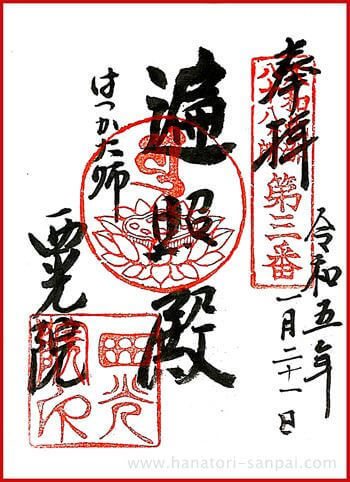 奉拝
第三番
令和五年
一月二十一日
遍照殿
はだか大師
西光院
西光院印
www.hanatori-sanpai.com